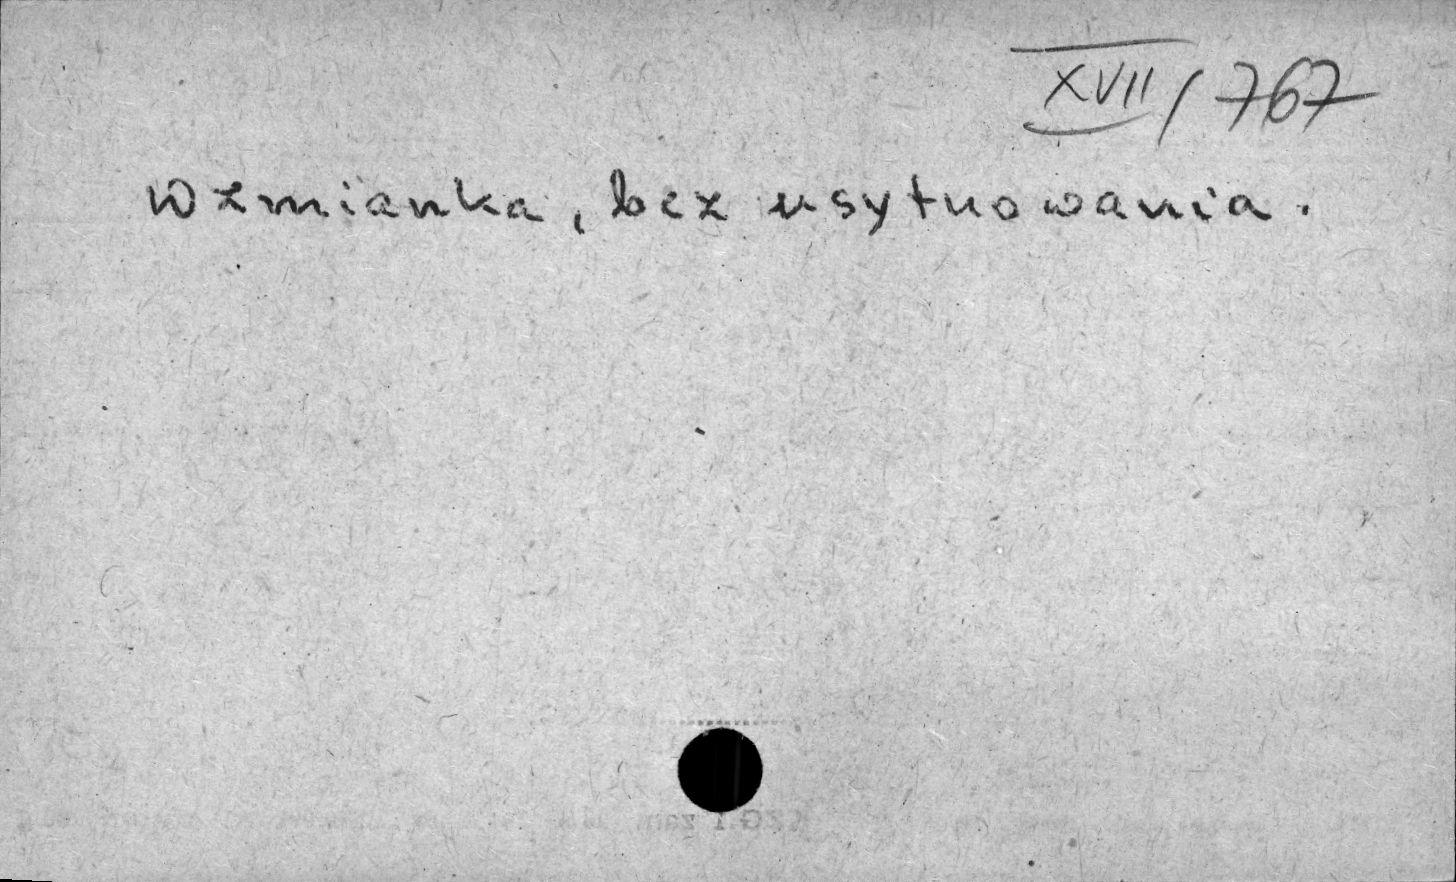 XVII/767
Wzmianka, bez usytuowania.